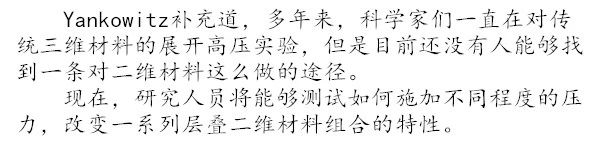 Yankowitz补充道，多年来，科学家们一直在对传
统三维材料的展开高压实验，但是目前还没有人能够找
到一条对二维材料这么做的途径。
现在，研究人员将能够测试如何施加不同程度的压
力，改变一系列层叠二维材料组合的特性。